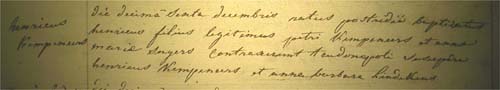 henricus
Kempeneers
die decimâ sexta decembris natus postridie baptizatus
henricus filius legitimus petri Kempeneers et anna
maria Snyers contraxerunt trudonopoli susceptores
henricus Kempeneers et anna barbara